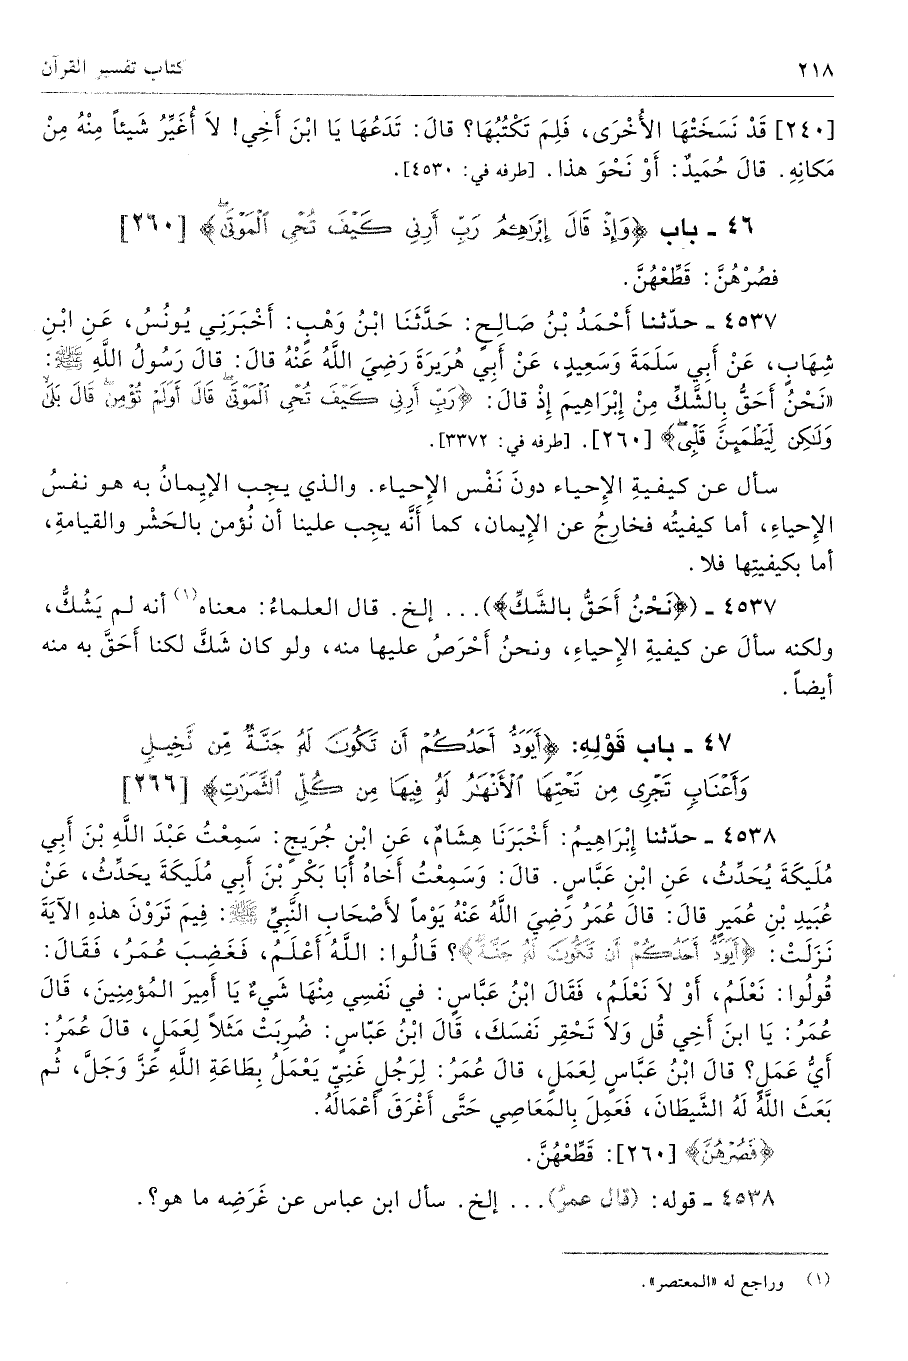 ٢١٨ كتاب تفسير القرآن
[٢٤٠] قَدْ نَسَخَتْهَا الأُخْرَى، فَلِمَ تَكْتُبُهَا؟ قالَ: تَدَعُهَا يَا ابْنَ أَخِي! لاَ أُغَيِّرُ شَيئاً مِنْهُ مِنْ
مَكانِهِ. قالَ حُمَيدٌ: أَوْ نَحْوَ هذا. [طرفه في: ٤٥٣٠].
٤٦ - باب ﴿وَإِذْ قَالَ إِبْرَاهِيمُ رَبِّ أَرِنِي كَيْفَ تُحْيِ الْمَوْتَىٰ﴾ [٢٦٠]
فَصُرْهُنَّ: قَطِّعْهُنَّ.
٤٥٣٧ - حدّثنا أَحْمَدُ بْنُ صَالِحٍ: حَدَّثَنَا ابْنُ وَهْبٍ: أَخْبَرَنِي يُونُسُ، عَنِ ابْنِ
شِهَابٍ، عَنْ أَبِي سَلَمَةَ وَسَعِيدٍ، عَنْ أَبِي هُرَيرَةَ رَضِيَ اللَّهُ عَنْهُ قالَ: قالَ رَسُولُ اللَّهِ ﷺ:
«نَحْنُ أَحَقُّ بِالشَّكِّ مِنْ إِبْرَاهِيمَ إِذْ قالَ: ﴿رَبِّ أَرِنِي كَيْفَ تُحْيِ الْمَوْتَىٰ قَالَ أَوَلَمْ تُؤْمِنْ قَالَ بَلَىٰ
وَلَٰكِن لِّيَطْمَئِنَّ قَلْبِي﴾ [٢٦٠]. [طرفه في: ٣٣٧٢].
سأل عن كيفيةِ الإِحياء دونَ نَفْس الإِحياء. والذي يجب الإِيمانُ به هو نفسُ
الإِحياءِ، أما كيفيتُه فخارِجٌ عن الإِيمان، كما أنَّه يجب علينا أن نُؤمن بالحَشْر والقيامةِ،
أما بكيفيتِها فلا.
٤٥٣٧ - (﴿نَحْنُ أَحَقُّ بالشَّكِّ﴾)... إلخ. قال العلماءُ: معناه(١) أنه لم يَشُكَّ،
ولكنه سألَ عن كيفيةِ الإِحياءِ، ونحنُ أَحْرَصُ عليها منه، ولو كان شَكَّ لكنا أَحَقَّ به منه
أيضاً.
٤٧ - باب قَوْلِهِ: ﴿أَيَوَدُّ أَحَدُكُمْ أَن تَكُونَ لَهُ جَنَّةٌ مِّن نَّخِيلٍ
وَأَعْنَابٍ تَجْرِي مِن تَحْتِهَا الْأَنْهَارُ لَهُ فِيهَا مِن كُلِّ الثَّمَرَاتِ﴾ [٢٦٦]
٤٥٣٨ - حدّثنا إِبْرَاهِيمُ: أَخْبَرَنَا هِشَامٌ، عَنِ ابْنِ جُرَيجٍ: سَمِعْتُ عَبْدَ اللَّهِ بْنَ أَبِي
مُلَيكَةَ يُحَدِّثُ، عَنِ ابْنِ عَبَّاسٍ. قالَ: وَسَمِعْتُ أَخاهُ أَبَا بَكْرِ بْنَ أَبِي مُلَيكَةَ يحَدِّثُ، عَنْ
عُبَيدِ بْنِ عُمَيرٍ قالَ: قالَ عُمَرُ رَضِيَ اللَّهُ عَنْهُ يَوْماً لأَصْحَابِ النَّبِيِّ ﷺ: فِيمَ تَرَوْنَ هذهِ الآيَةَ
نَزَلَتْ: ﴿أَيَوَدُّ أَحَدُكُمْ أَن تَكُونَ لَهُ جَنَّةٌ﴾؟ قَالُوا: اللَّهُ أَعْلَمُ، فَغَضِبَ عُمَرُ، فَقَالَ:
قُولُوا: نَعْلَمُ، أَوْ لاَ نَعْلَمُ، فَقَالَ ابْنُ عَبَّاسٍ: في نَفْسِي مِنْهَا شَيءٌ يَا أَمِيرَ المُؤْمِنِينَ، قالَ
عُمَرُ: يَا ابنَ أَخِي قُل وَلاَ تَحْقِر نَفسَكَ، قَالَ ابْنُ عَبَّاسٍ: ضُرِبَتْ مَثَلاً لِعَمَلٍ، قالَ عُمَرُ:
أَيُّ عَمَلٍ؟ قالَ ابْنُ عَبَّاسٍ لِعَمَلٍ، قالَ عُمَرُ: لِرَجُلٍ غَنِيٍّ يَعْمَلُ بِطَاعَةِ اللَّهِ عَزَّ وَجَلَّ، ثُم
بَعَثَ اللَّهُ لَهُ الشَّيطَانَ، فَعَمِلَ بِالمَعَاصِي حَتَّى أَغْرَقَ أَعْمَالَهُ.
﴿فَصُرْهُنَّ﴾ [٢٦٠]: قَطِّعْهُنَّ.
٤٥٣٨ - قوله: (قال عمرُ)... إلخ. سأل ابن عباس عن غَرَضِه ما هو؟.
(١) وراجع له «المعتصر».